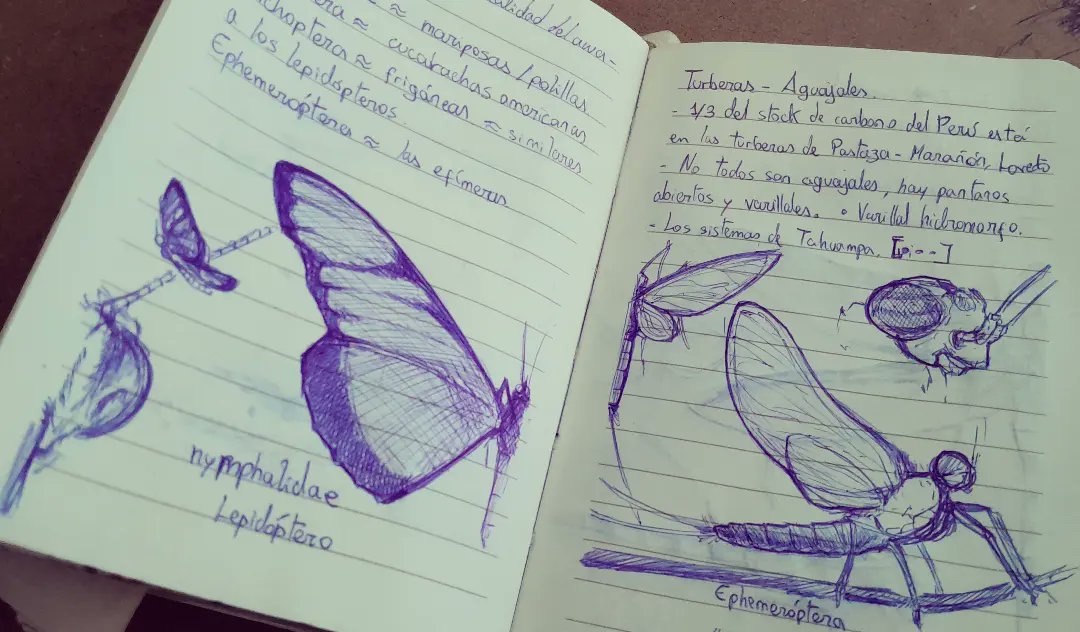 ≈ mariposas/polillas
≈ cucarachas americanas
≈ frigáneas ≈ similares
a los lepidópteros
Ephemeróptera ≈ las efímeras
nymphalidae
Lepidóptero
Turberas - Aguajales.
- 1/3 del stock de carbono del Perú está
en las turberas de Pastaza - Marañón, Loreto
- No todos son aguajales, hay pantanos
abiertos y varillales. • Varillal hidromorfo.
- Los sistemas de Tahuampa.
Ephemeróptera